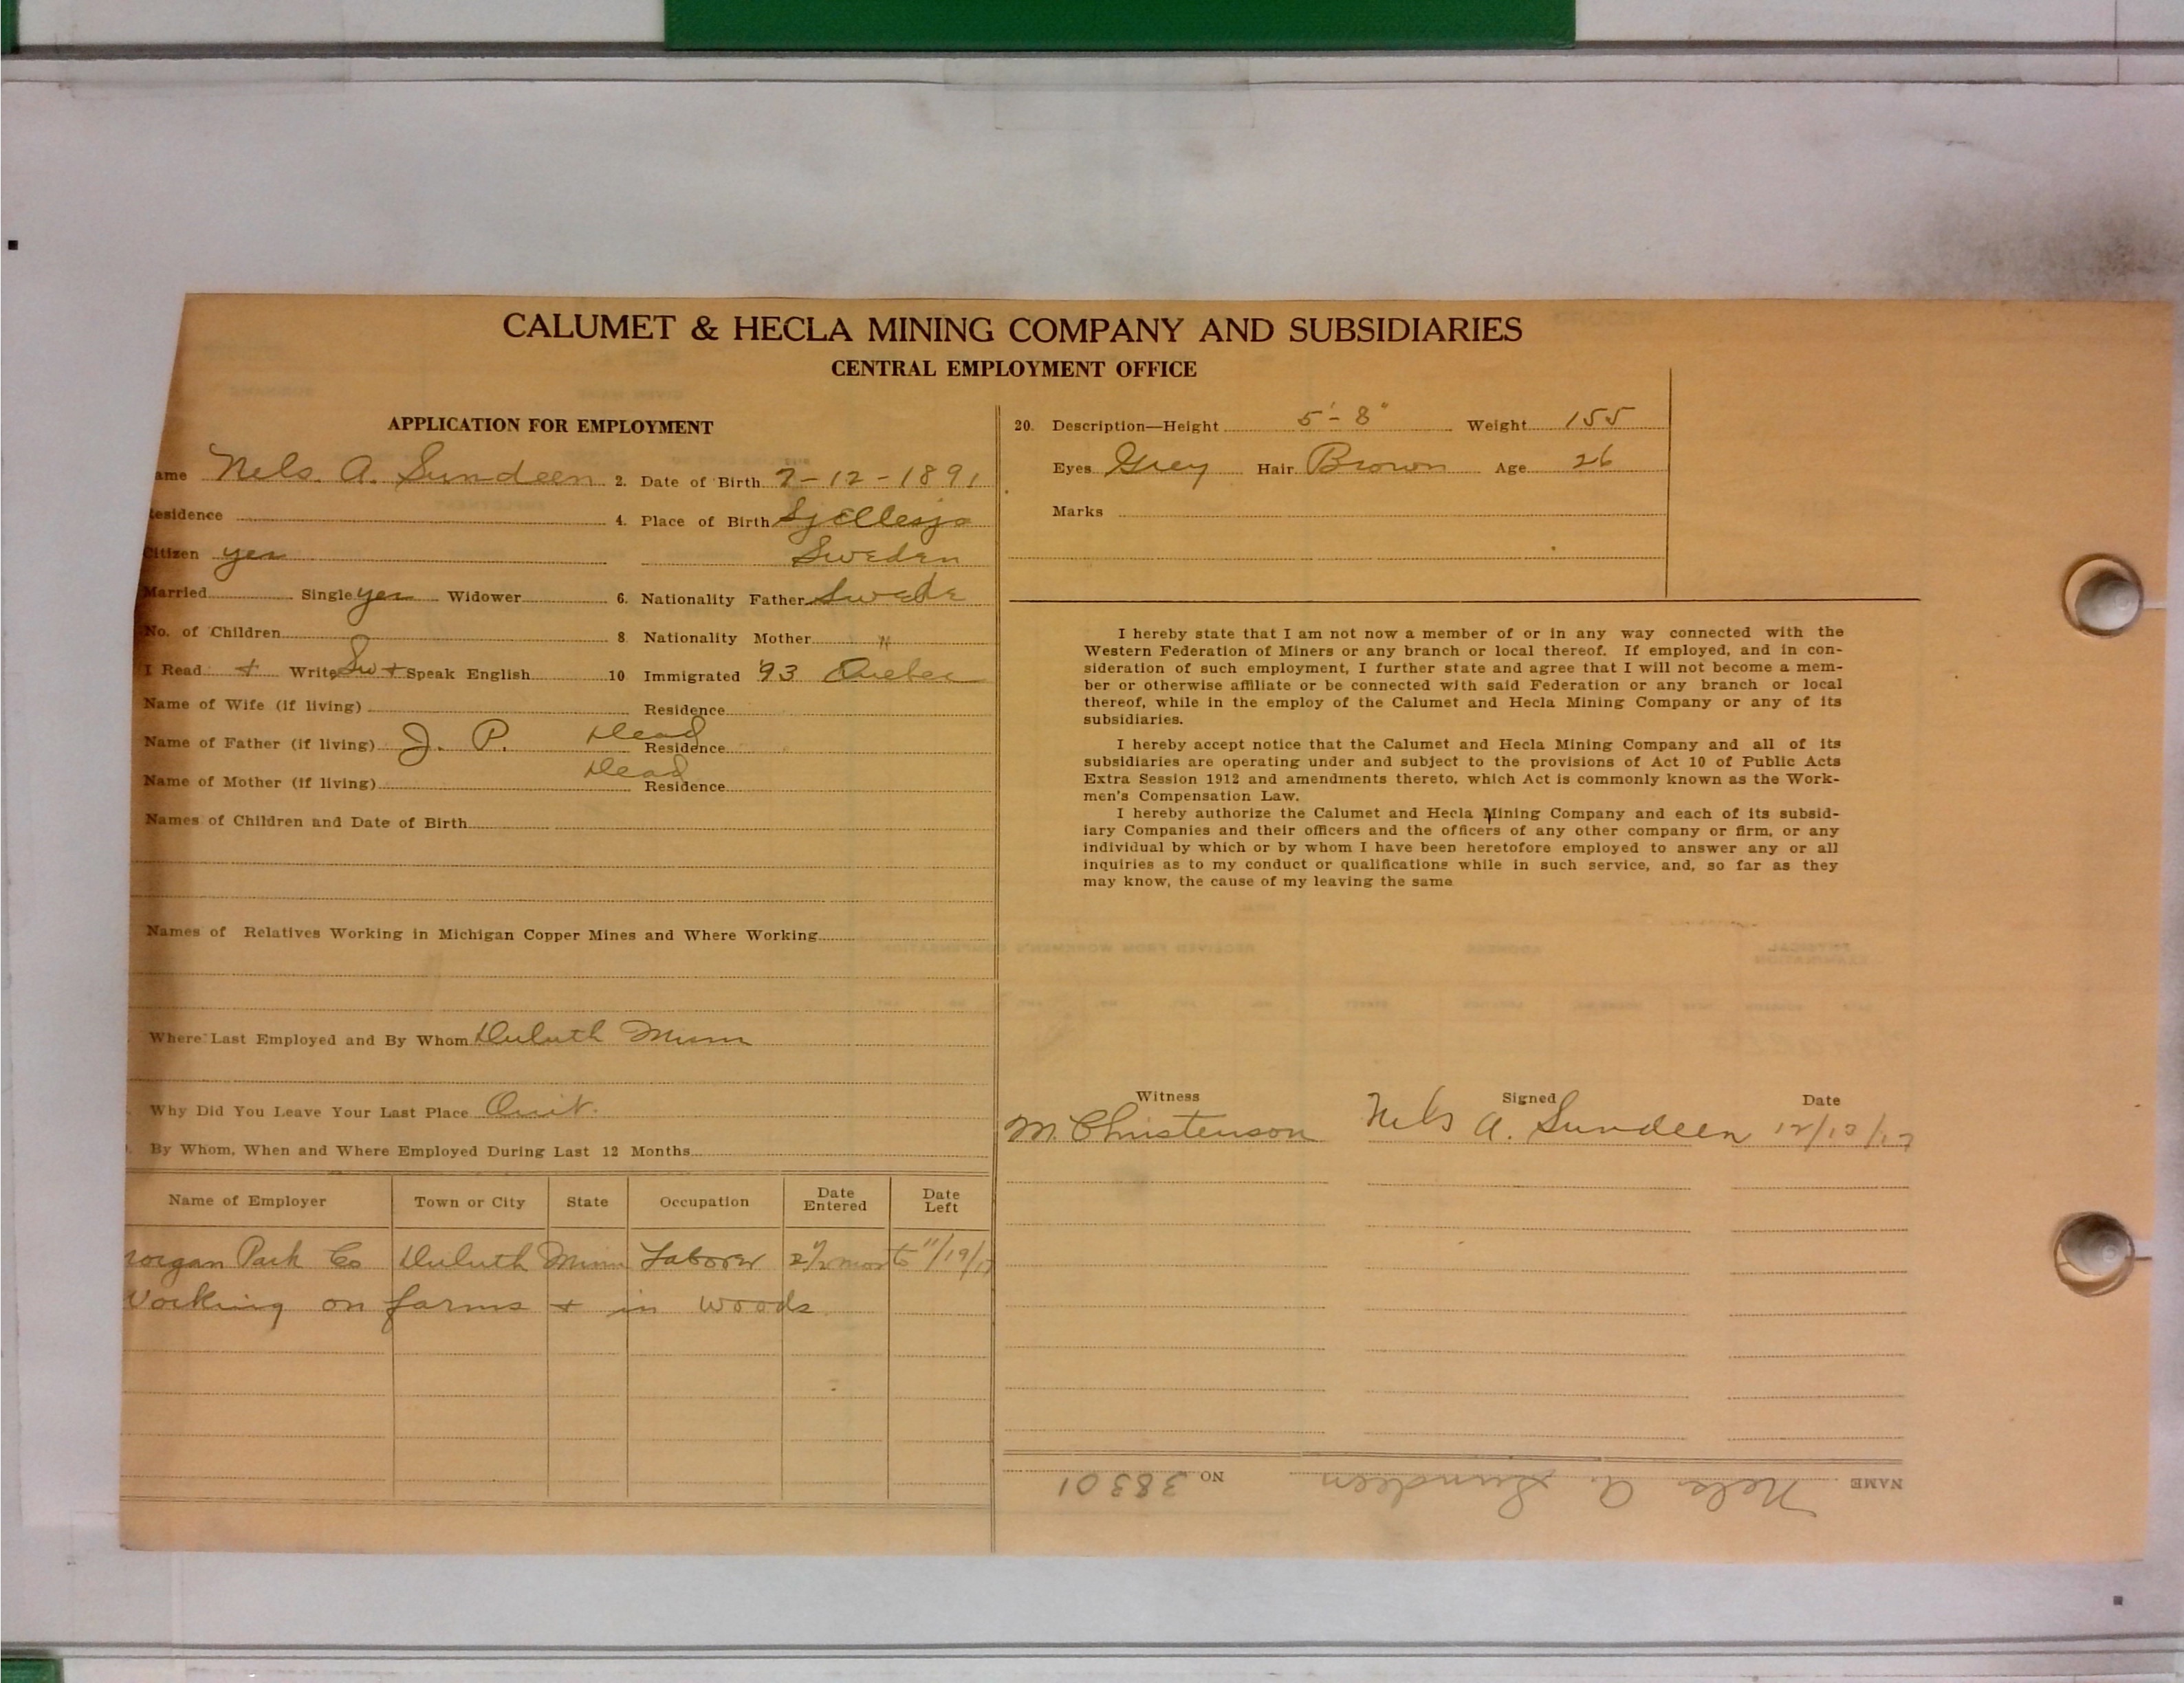 CALUMET & HECLA MINING COMPANY AND SUBSIDIARIES
CENTRAL EMPLOYMENT OFFICE
APPLICATION FOR EMPLOYMENT
ame Nels. A. Sundeen 2. Date of Birth 7-12-1891
Residence 4. Place of Birth
Citizen yes Sweden
Married Single yes Widower 6. Nationality Father Swede
No. of Children 8. Nationality Mother "
I Read + Write Sw + Speak English 10 Immigrated '93 Quebec
Name of Wife (if living) Residence
Name of Father (if living) J. P. Dead Residence
Name of Mother (if living) Dead Residence
Names of Children and Date of Birth
Names of Relatives Working in Michigan Copper Mines and Where Working
Where Last Employed and By Whom Duluth Minn
Why Did You Leave Your Last Place Quit.
By Whom, When and Where Employed During Last 12 Months
Name of Employer Town or City State Occupation Date Entered Date Left
organ Park Co Duluth Minn Laborer 2 1/2 mos to 11/19/17
Working on farms + in woods
20. Description—Height 5'-8" Weight 155
Eyes Grey Hair Brown Age 26
Marks
I hereby state that I am not now a member of or in any way connected with the
Western Federation of Miners or any branch or local thereof. If employed, and in con-
sideration of such employment, I further state and agree that I will not become a mem-
ber or otherwise affiliate or be connected with said Federation or any branch or local
thereof, while in the employ of the Calumet and Hecla Mining Company or any of its
subsidiaries.
I hereby accept notice that the Calumet and Hecla Mining Company and all of its
subsidiaries are operating under and subject to the provisions of Act 10 of Public Acts
Extra Session 1912 and amendments thereto, which Act is commonly known as the Work-
men's Compensation Law.
I hereby authorize the Calumet and Hecla Mining Company and each of its subsid-
iary Companies and their officers and the officers of any other company or firm, or any
individual by which or by whom I have been heretofore employed to answer any or all
inquiries as to my conduct or qualifications while in such service, and, so far as they
may know, the cause of my leaving the same
Witness Signed Date
M. Christenson Nels A. Sundeen
NAME Nels A. Sundeen NO 38301